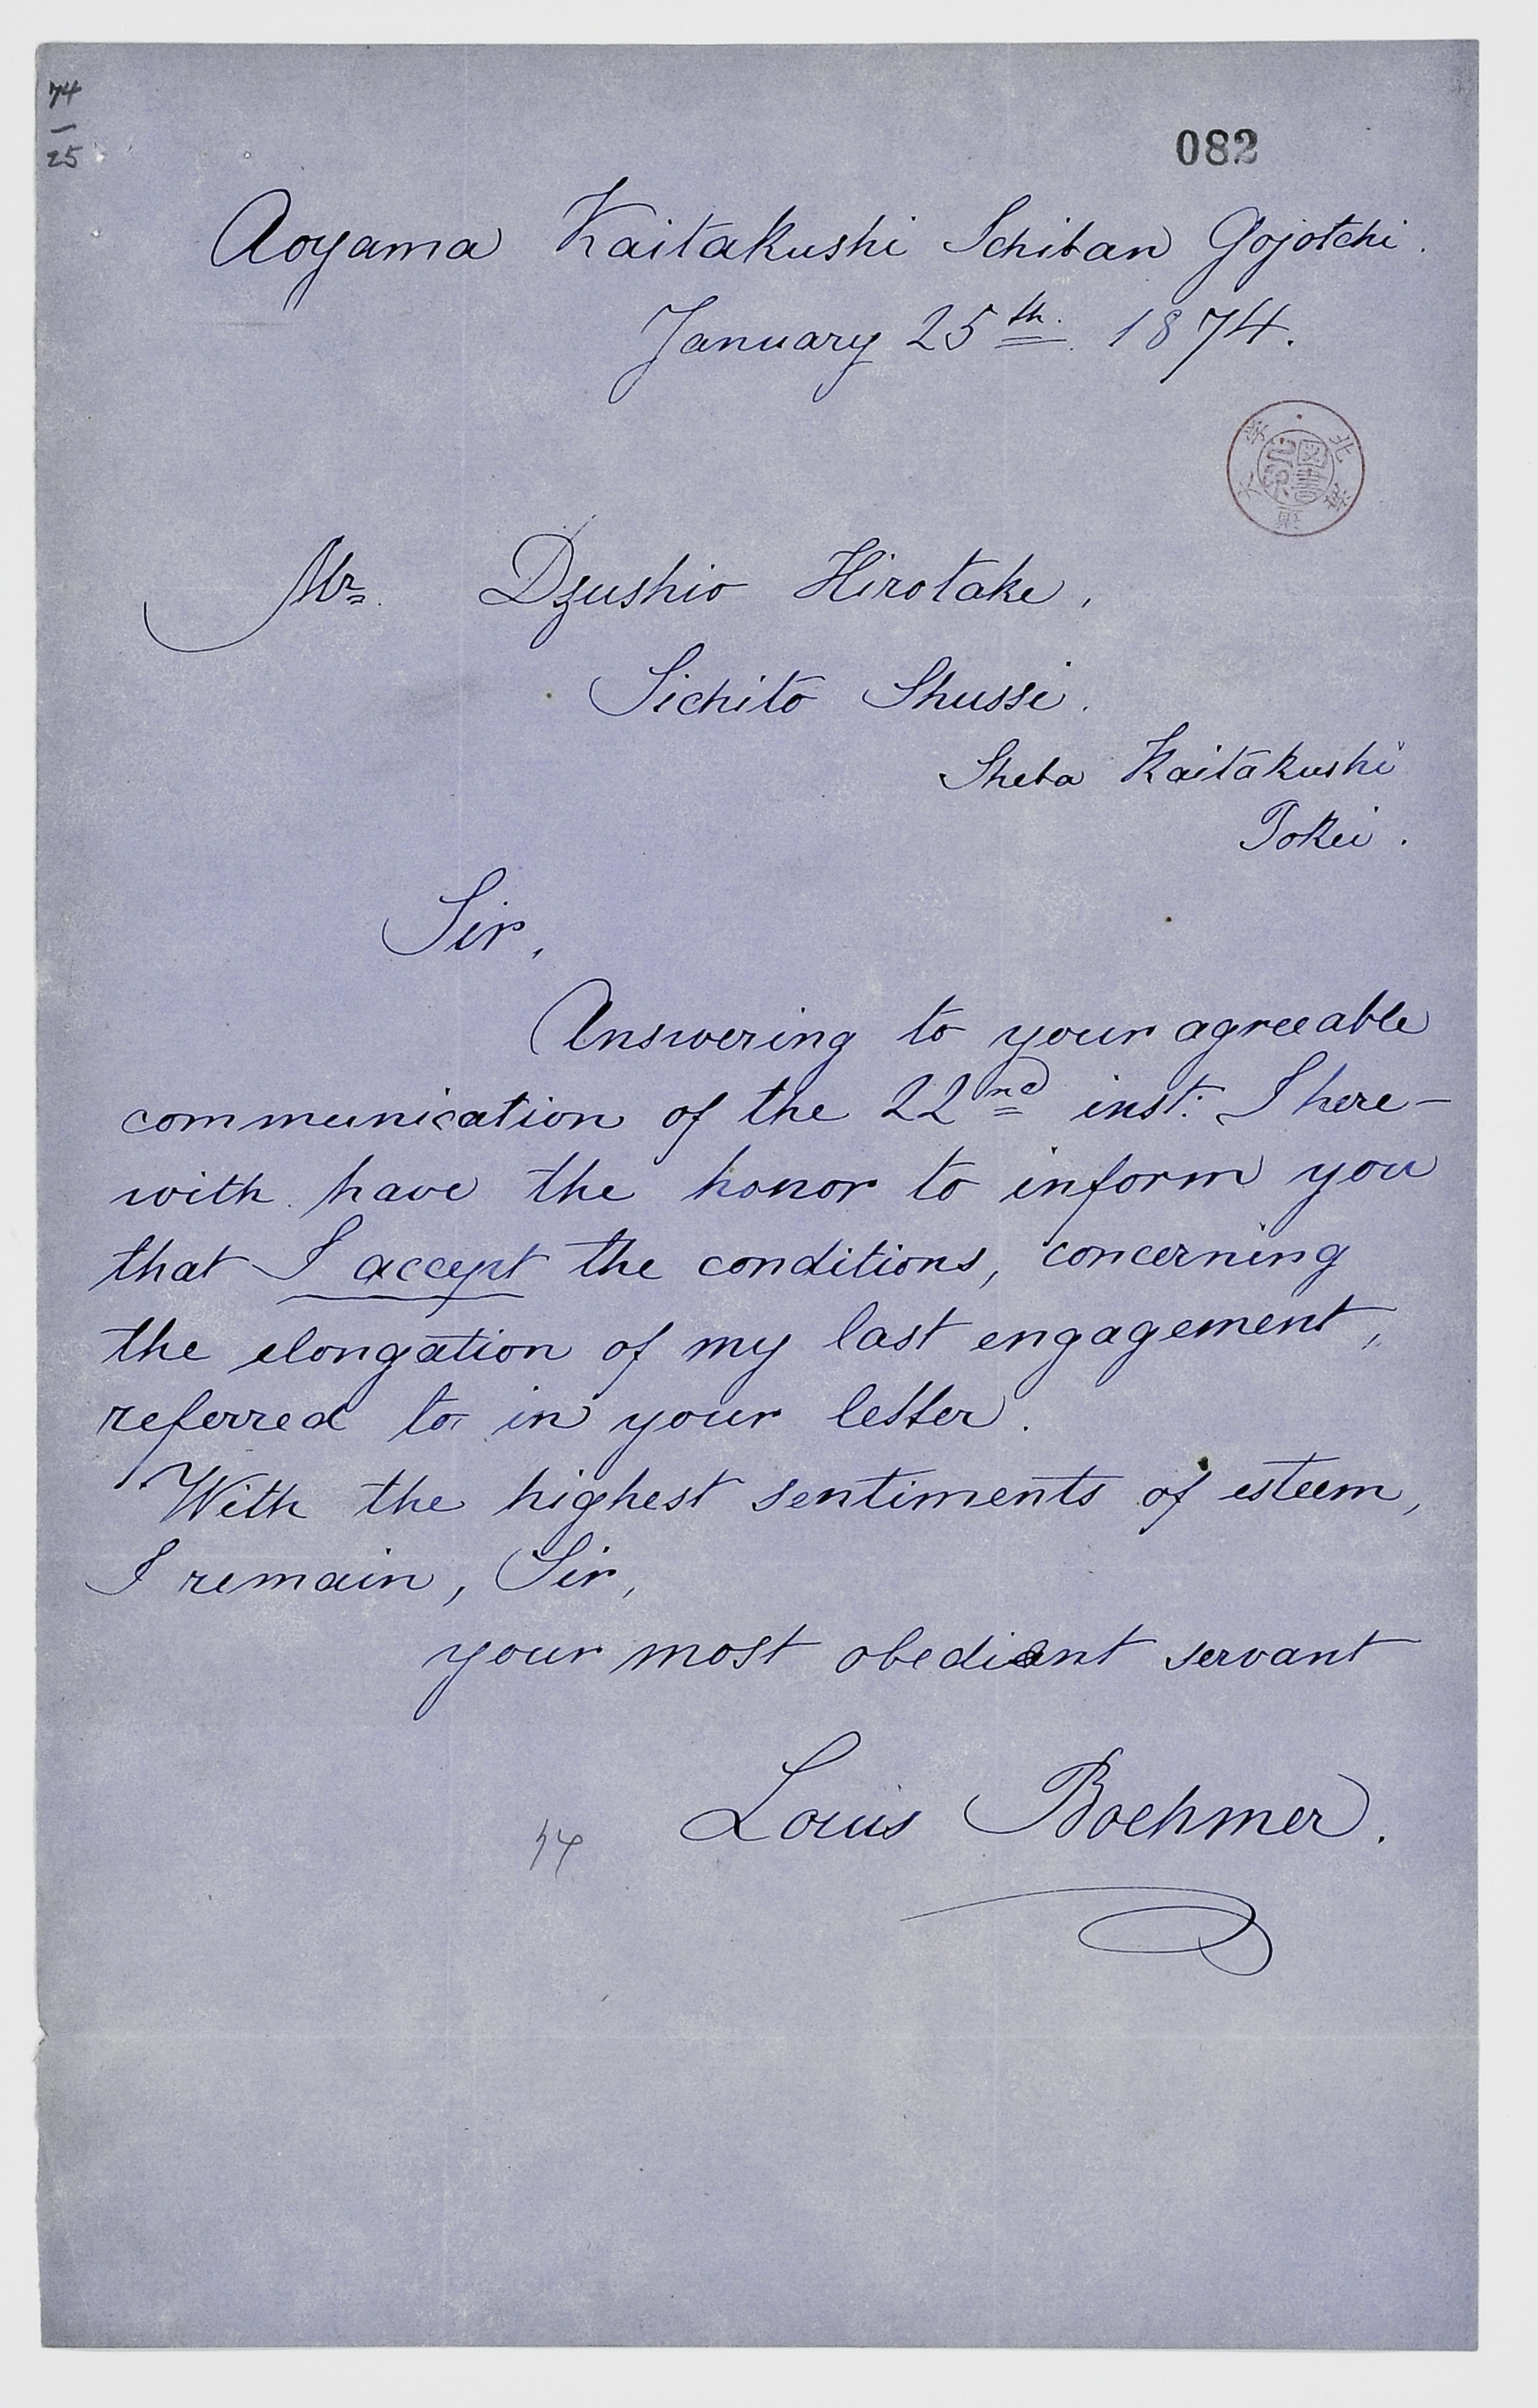 74
—
25
082
Aoyama Kaitakushi Schiban Gojotchi.
January 25th. 1874.
北海道大学図書
Mr. Dzushio Hirotake,
Sichito Shussi.
Sheba Kaitakushi
Tokei.
Sir,
Answering to your agreeable
communication of the 22nd inst. I here-
with have the honor to inform you
that I accept the conditions, concerning
the elongation of my last engagement,
referred to in your letter.
With the highest sentiments of esteem,
I remain, Sir,
your most obedient servant
Louis Boehmer.